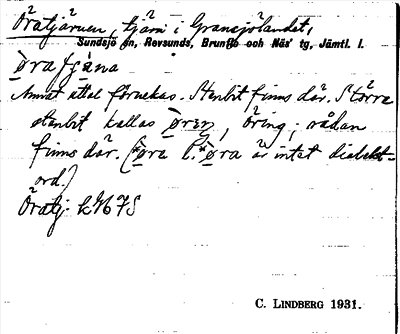 Öratjärnen, tjärn i Gransjölandet,
Sundsjö sn, Revsunds, Brunflo och Näs' tg, Jämtl. l.
ørafjäna
Annat uttal förnekas. Stenbit finns där. Större
stenbit kallas øren, öring; sådan
finns där. (*øra l. *øra är intet dialekt-
ord.)
Öratj. k
C. LINDBERG 1931.